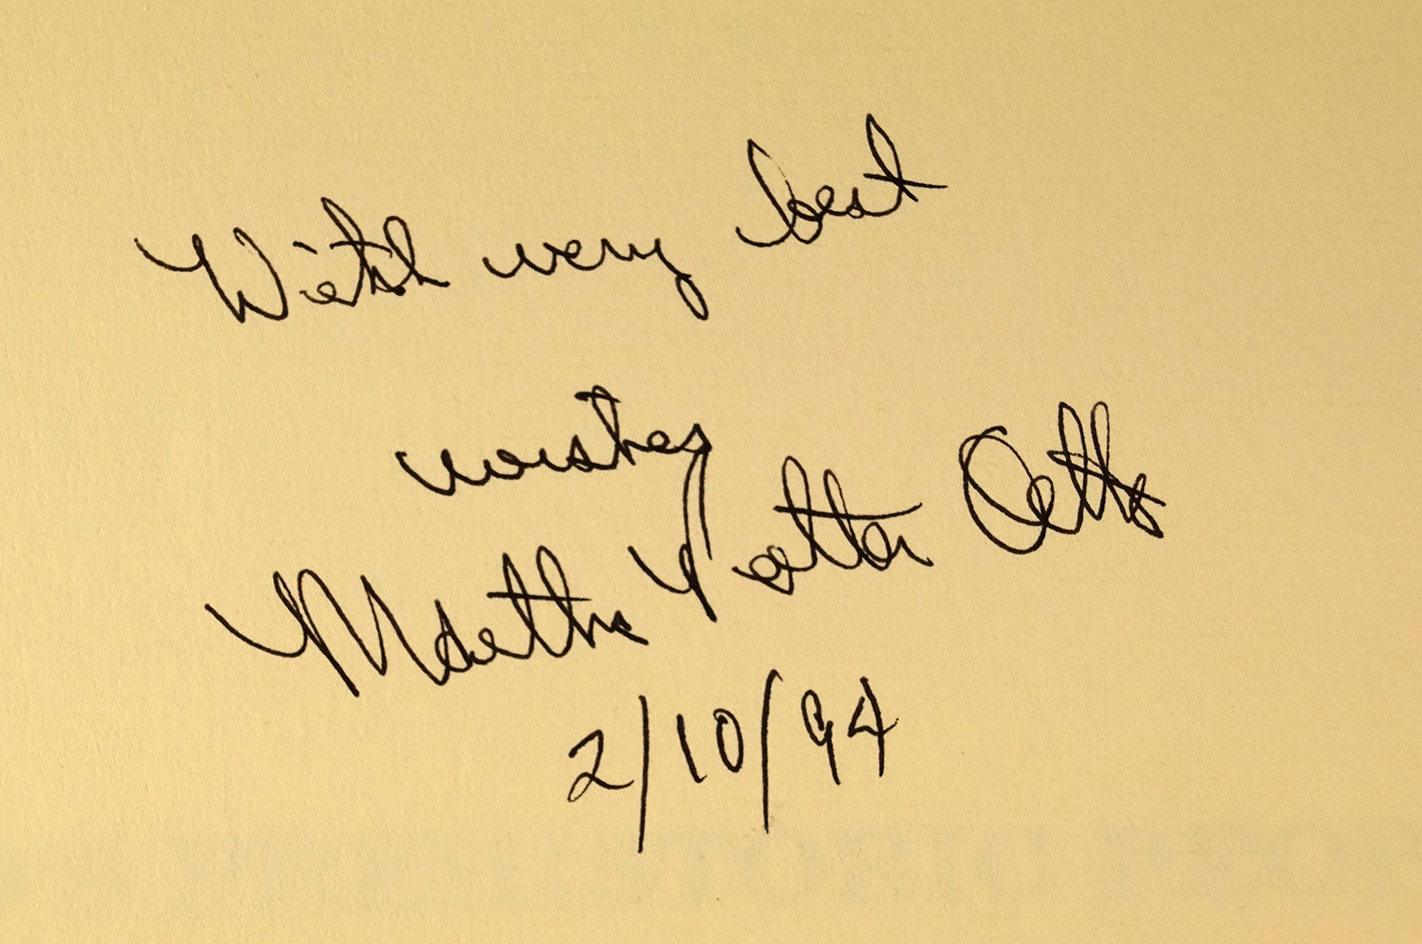 With very best
wishes
Martha Potter Otto
2/10/94